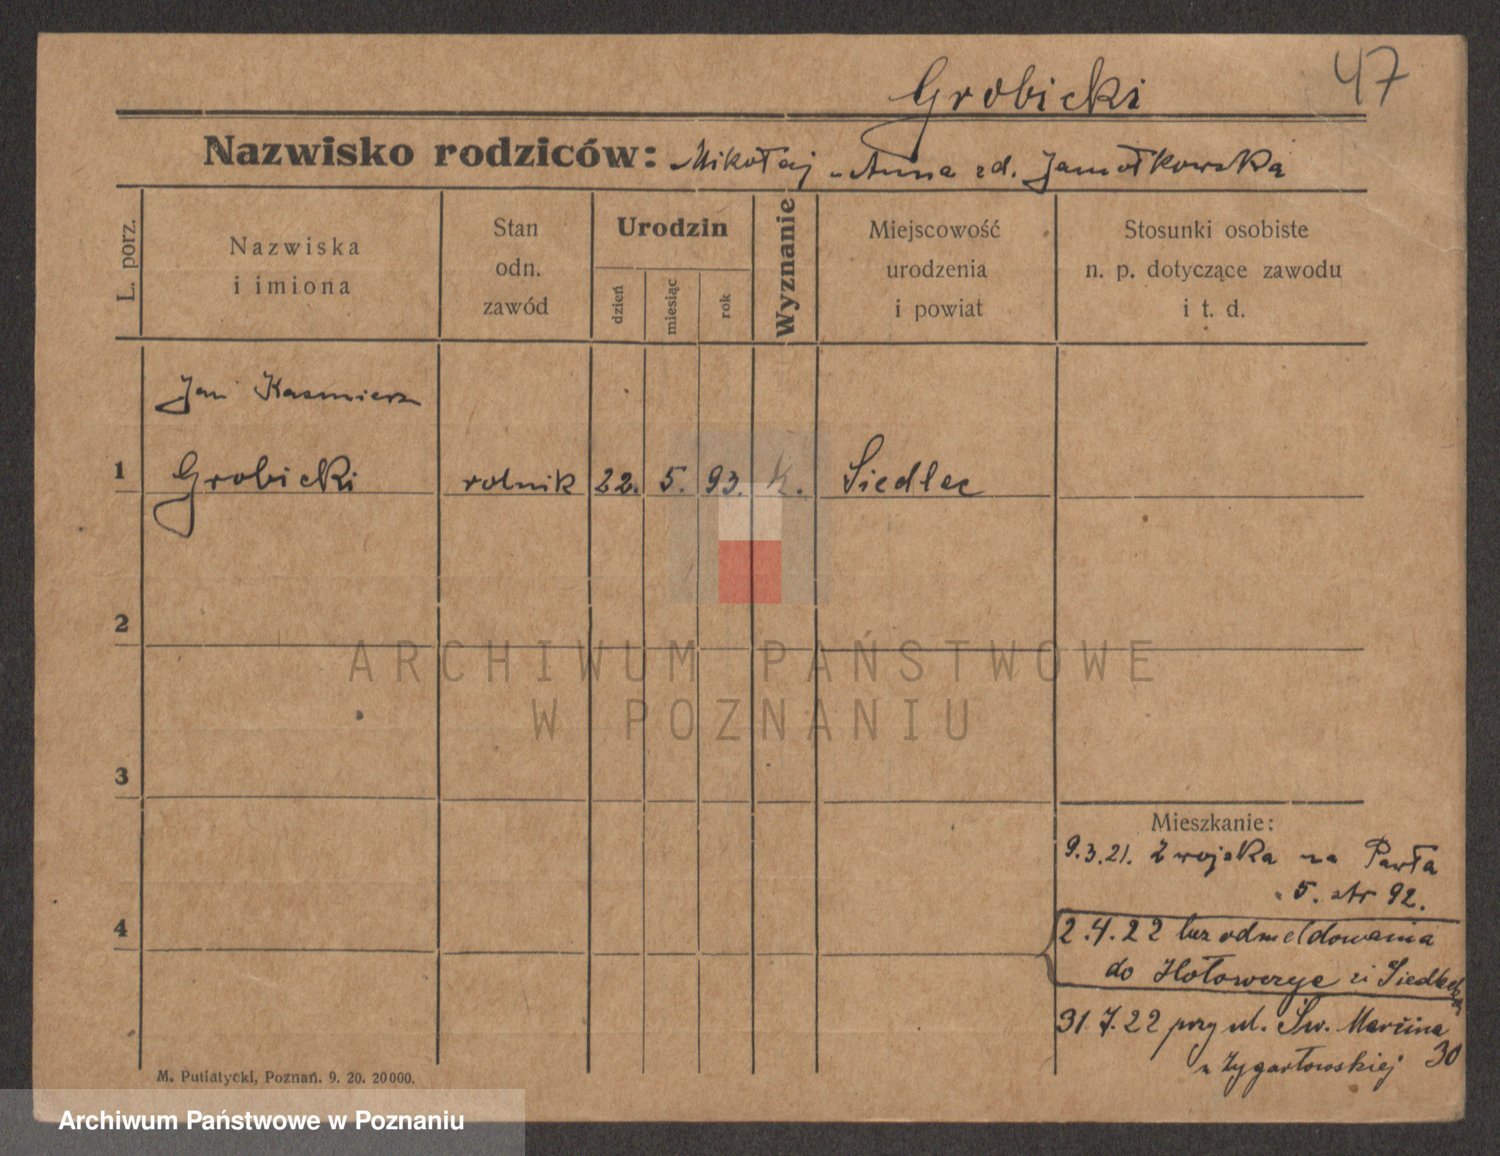 Grobicki
47
Nazwisko rodziców: Mikołaj - Anna zd. Jamołkowska
L. porz.
Nazwiska
i imiona
Stan
odn.
zawód
Urodzin
dzień
miesiąc
rok
Wyznanie
Miejscowość
urodzenia
i powiat
Stosunki osobiste
n. p. dotyczące zawodu
i t. d.
Jan Kazmierz
1 Grobicki rolnik 22. 5. 93. k. Siedlec
2
ARCHIWUM PAŃSTWOWE
W POZNANIU
3
Mieszkanie:
9.3.21. Z wojska na Pawła
5. str 92.
4
2.4.22 bez odmeldowania
do Hołowczyc zi Siedlecka
31.7.22 przy ul. Św. Marcina
30
u Zygartowskiej
M. Putiatycki, Poznań. 9. 20. 20000.
Archiwum Państwowe w Poznaniu